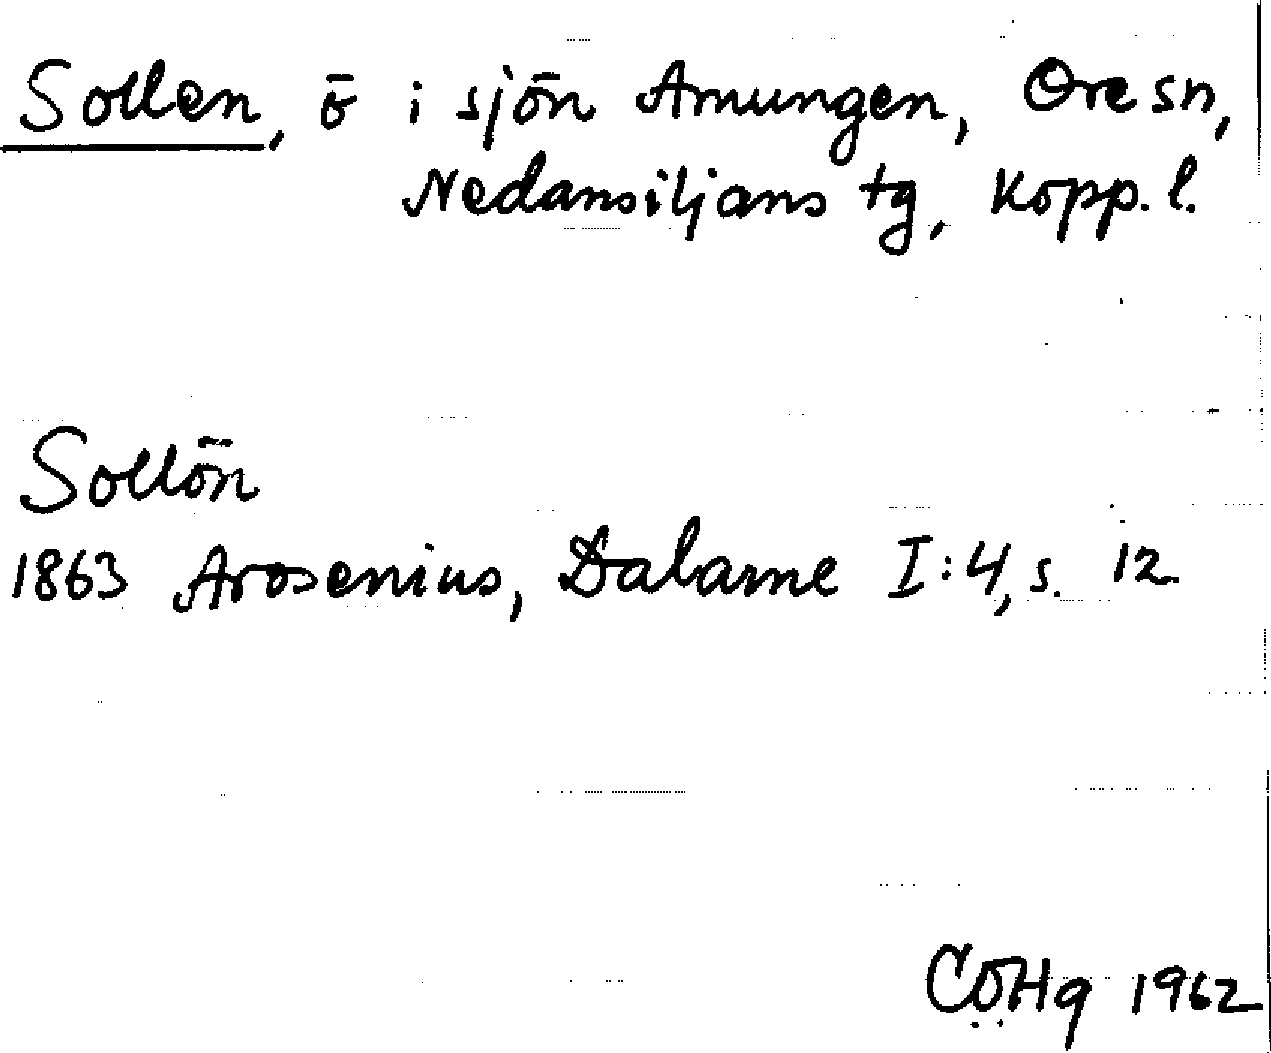 Sollen, ö i sjön Amungen, Ore sn,
Nedansiljans tg, Kopp. l.
Sollön
1863 Arosenius, Dalarne I:4, s. 12
COHq 1962